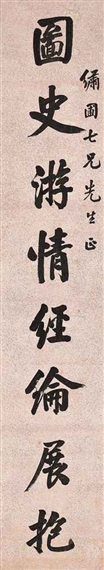 繡圃七兄先生正
圖史游情經綸展抱